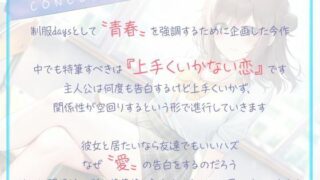 CONC
制服daysとして〝青春〟を強調するために企画した今作
中でも特筆すべきは『上手くいかない恋』です
主人公は何度も告白するけど上手くいかず、
関係性が空回りするという形で進行していきます
彼女と居たいなら友達でもいいハズ
なぜ〝愛〟の告白をするのだろう